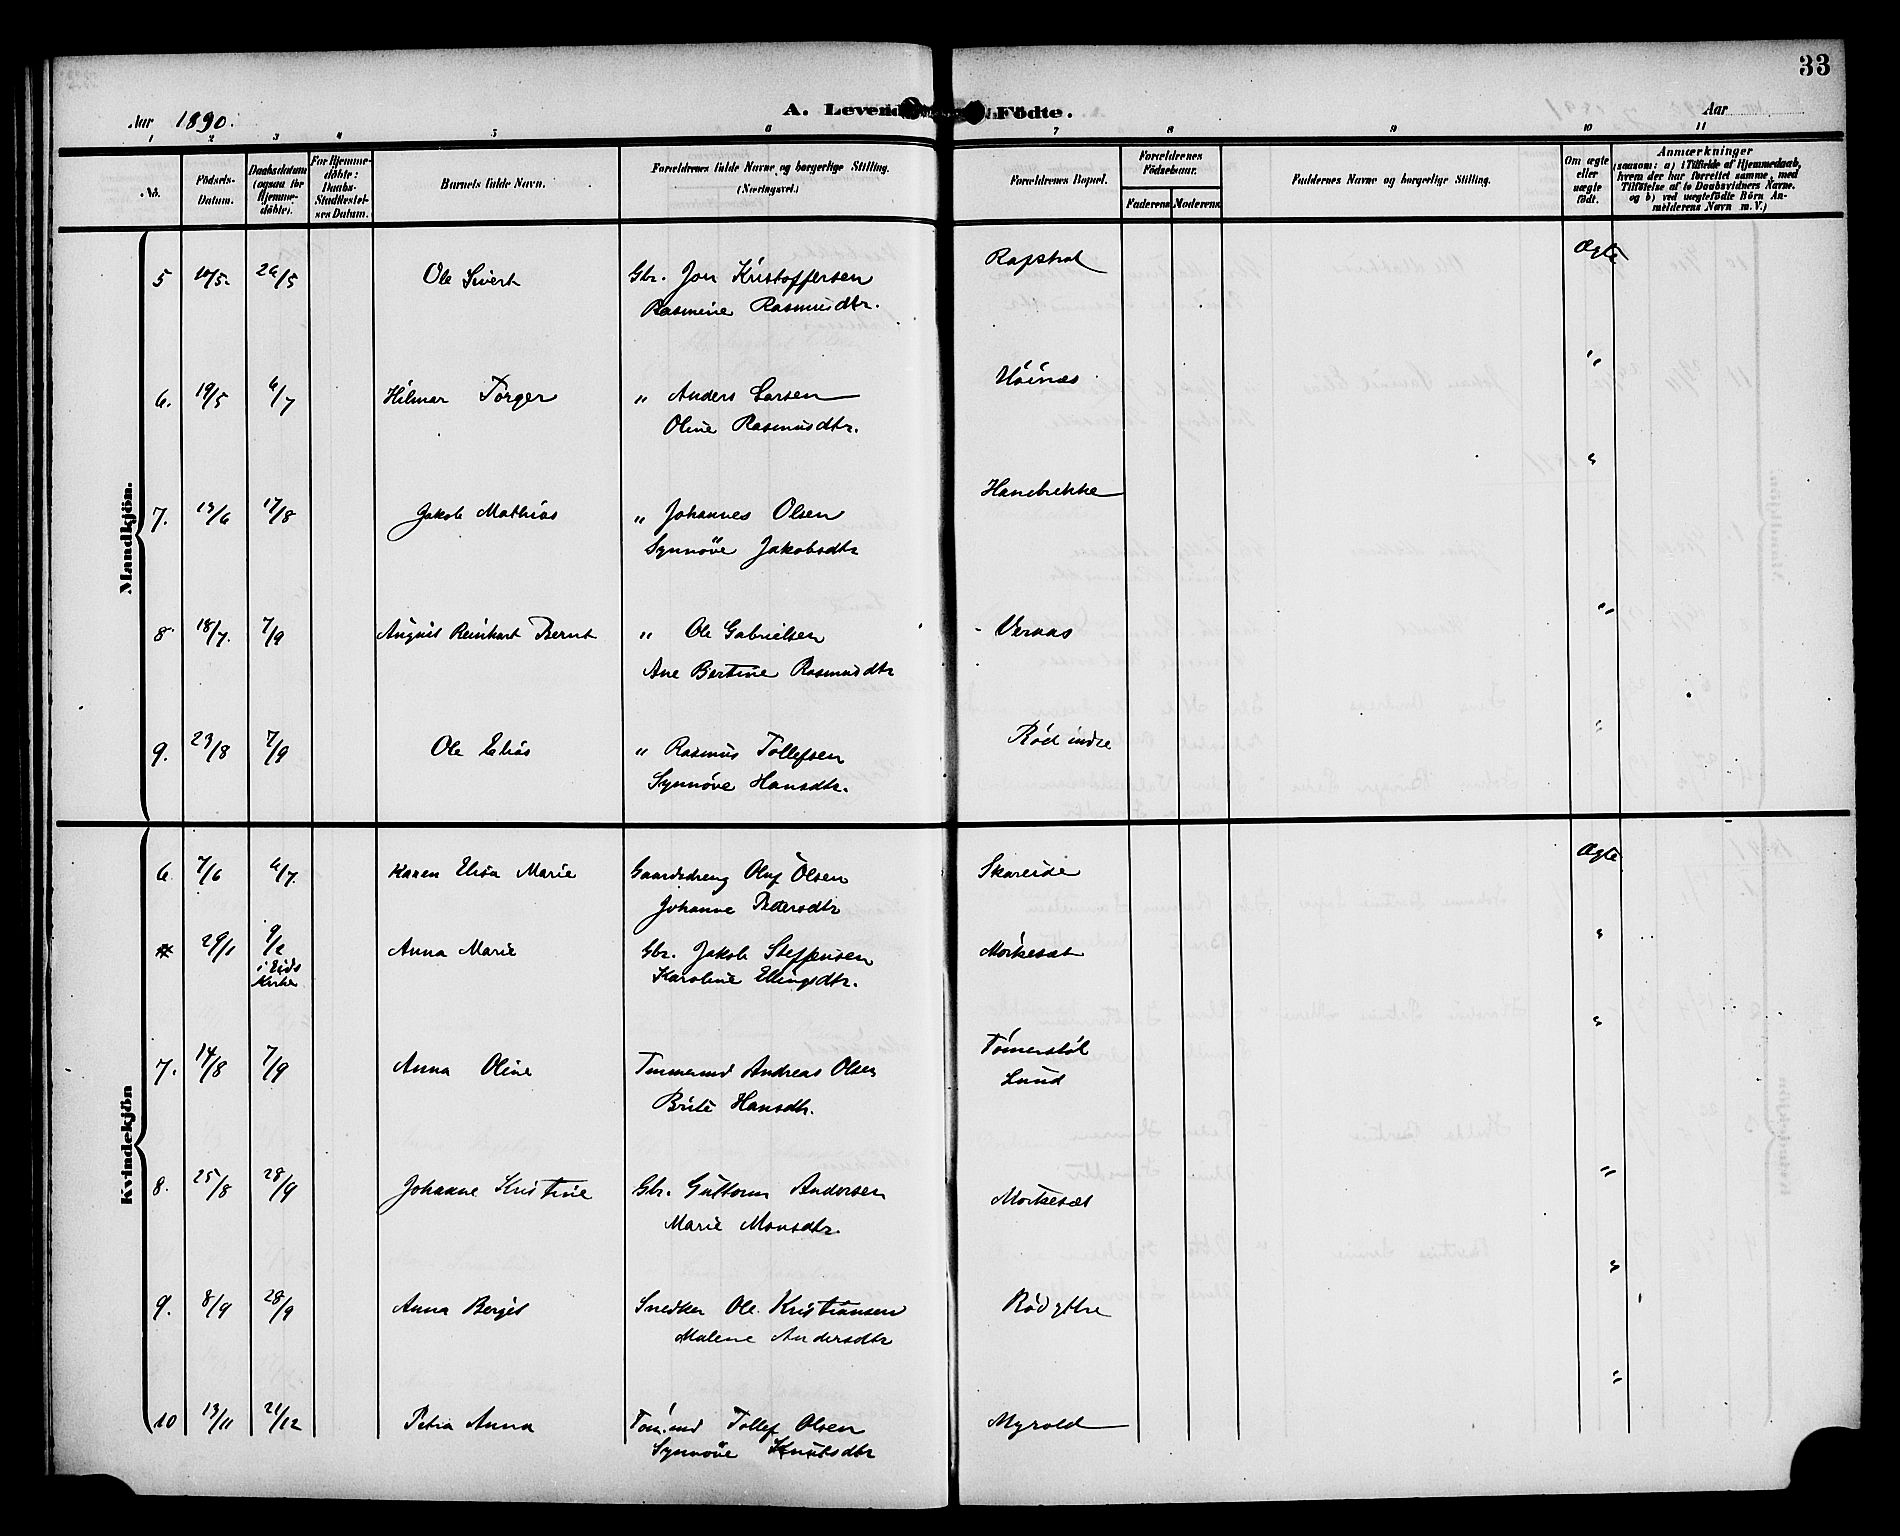 33
Aar 1890. A. Levende Födte. Aar
1 2 3 4 5 6 7 8 9 10 11
No. Födsels-Datum. Daabsdatum (ogsaa for Hjemme-döbte). For Hjemme-döbte: Daabs-Stadfæstel-ses Datum. Barnets fulde Navn. Forældrenes fulde Navne og borgerlige Stilling. (Næringsvei.) Forældrenes Bopæl. Forældrenes Födselsaar. Faderens Moderens Faddernes Navne og borgerlige Stilling. Om ægte eller uægte födt. Anmærkninger (saasom: a) i Tilfælde af Hjemmedaab, hvem der har forrettet samme, med Tilföielse af to Daabsvidners Navne. og b) ved uægtefödte Börn An-melderens Navn m. V.)
Mandkjön.
5 10/5. 26/5 Ole Sivert Gbr. Jon Kristoffersen Rapstad Ægte
Rasmine Rasmusdtr.
6. 19/5 6/7 Hilmar Torger " Anders Larsen Höinæs "
Oline Rasmusdtr.
7. 13/6 17/8 Jakob Mathias " Johannes Olsen Hanebrekke "
Synnöve Jakobsdtr
8 18/7. 7/9 August Reinhart Bernt " Ole Gabrielsen Vernæs "
Ane Bertine Rasmusdtr
9. 23/8 7/9 Ole Elias " Rasmus Tollefsen Röd indre "
Synnöve Hansdtr.
Kvindekjön
6 7/6 6/7. Karen Elisa Marie Gaardsdreng Oluf Olsen Skareide Ægte
Johanne Pedersdtr
29/1 9/2 i Eids Kirke Anna Marie Gbr. Jakob Steffensen Morkesæt "
Karoline Ellingsdtr.
7. 14/8 7/9 Anna Oline Tømmermd Andreas Olsen Tömerstöl "
Brite Hansdtr. Lund
8. 25/8 28/9 Johanne Kristine Gbr. Guttorm Andersen Morkesæt "
Marie Monsdtr.
9. 8/9 28/9 Anna Berget Snedker Ole Kristiansen Röd ytre "
Malene Andersdtr
10 13/11 21/12 Petra Anna Töm.md Tollef Olsen Myrold "
Synnöve Knutsdtr